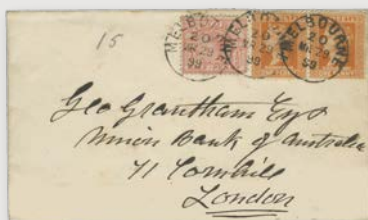 15
MELBOURNE
20
99
MELBOURNE
20
99
MELBOURNE
20
99
Geo Grantham Esqr
Union Bank of Australia
71 Cornhill
London